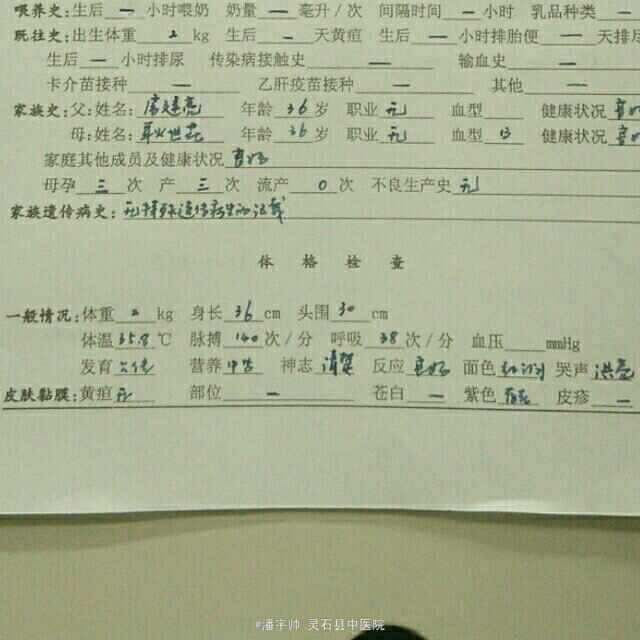 喂养史:生后 一 小时喂奶 奶量 一 毫升/次 间隔时间 一 小时 乳品种类 一
既往史:出生体重 2 kg 生后 一 天黄疸 生后 一 小时排胎便 一 天排尽
生后 一 小时排尿 传染病接触史 一 输血史 一
卡介苗接种 一 乙肝疫苗接种 一 其他 一
家族史:父:姓名: 年龄 36 岁 职业 无 血型 健康状况 良好
母:姓名: 年龄 36 岁 职业 无 血型 B 健康状况 良好
家庭其他成员及健康状况 良好
母孕 三 次 产 三 次 流产 0 次 不良生产史 无
家族遗传病史: 无特殊遗传
体格检查
一般情况:体重 2 kg 身长 36 cm 头围 30 cm
体温 35.8 ℃ 脉搏 140 次/分 呼吸 38 次/分 血压 mmHg
发育 营养 中等 神志 清楚 反应 良好 面色 红润 哭声 洪亮
皮肤黏膜:黄疸 无 部位 一 苍白 一 紫色 皮疹 一
@潘宇帅 灵石县中医院